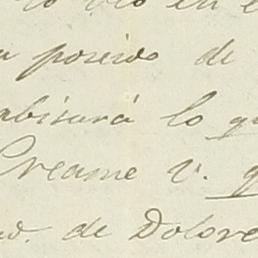 lo veo en e
a poseido de
abisará lo q
Creame V. q
ud. de Dolore